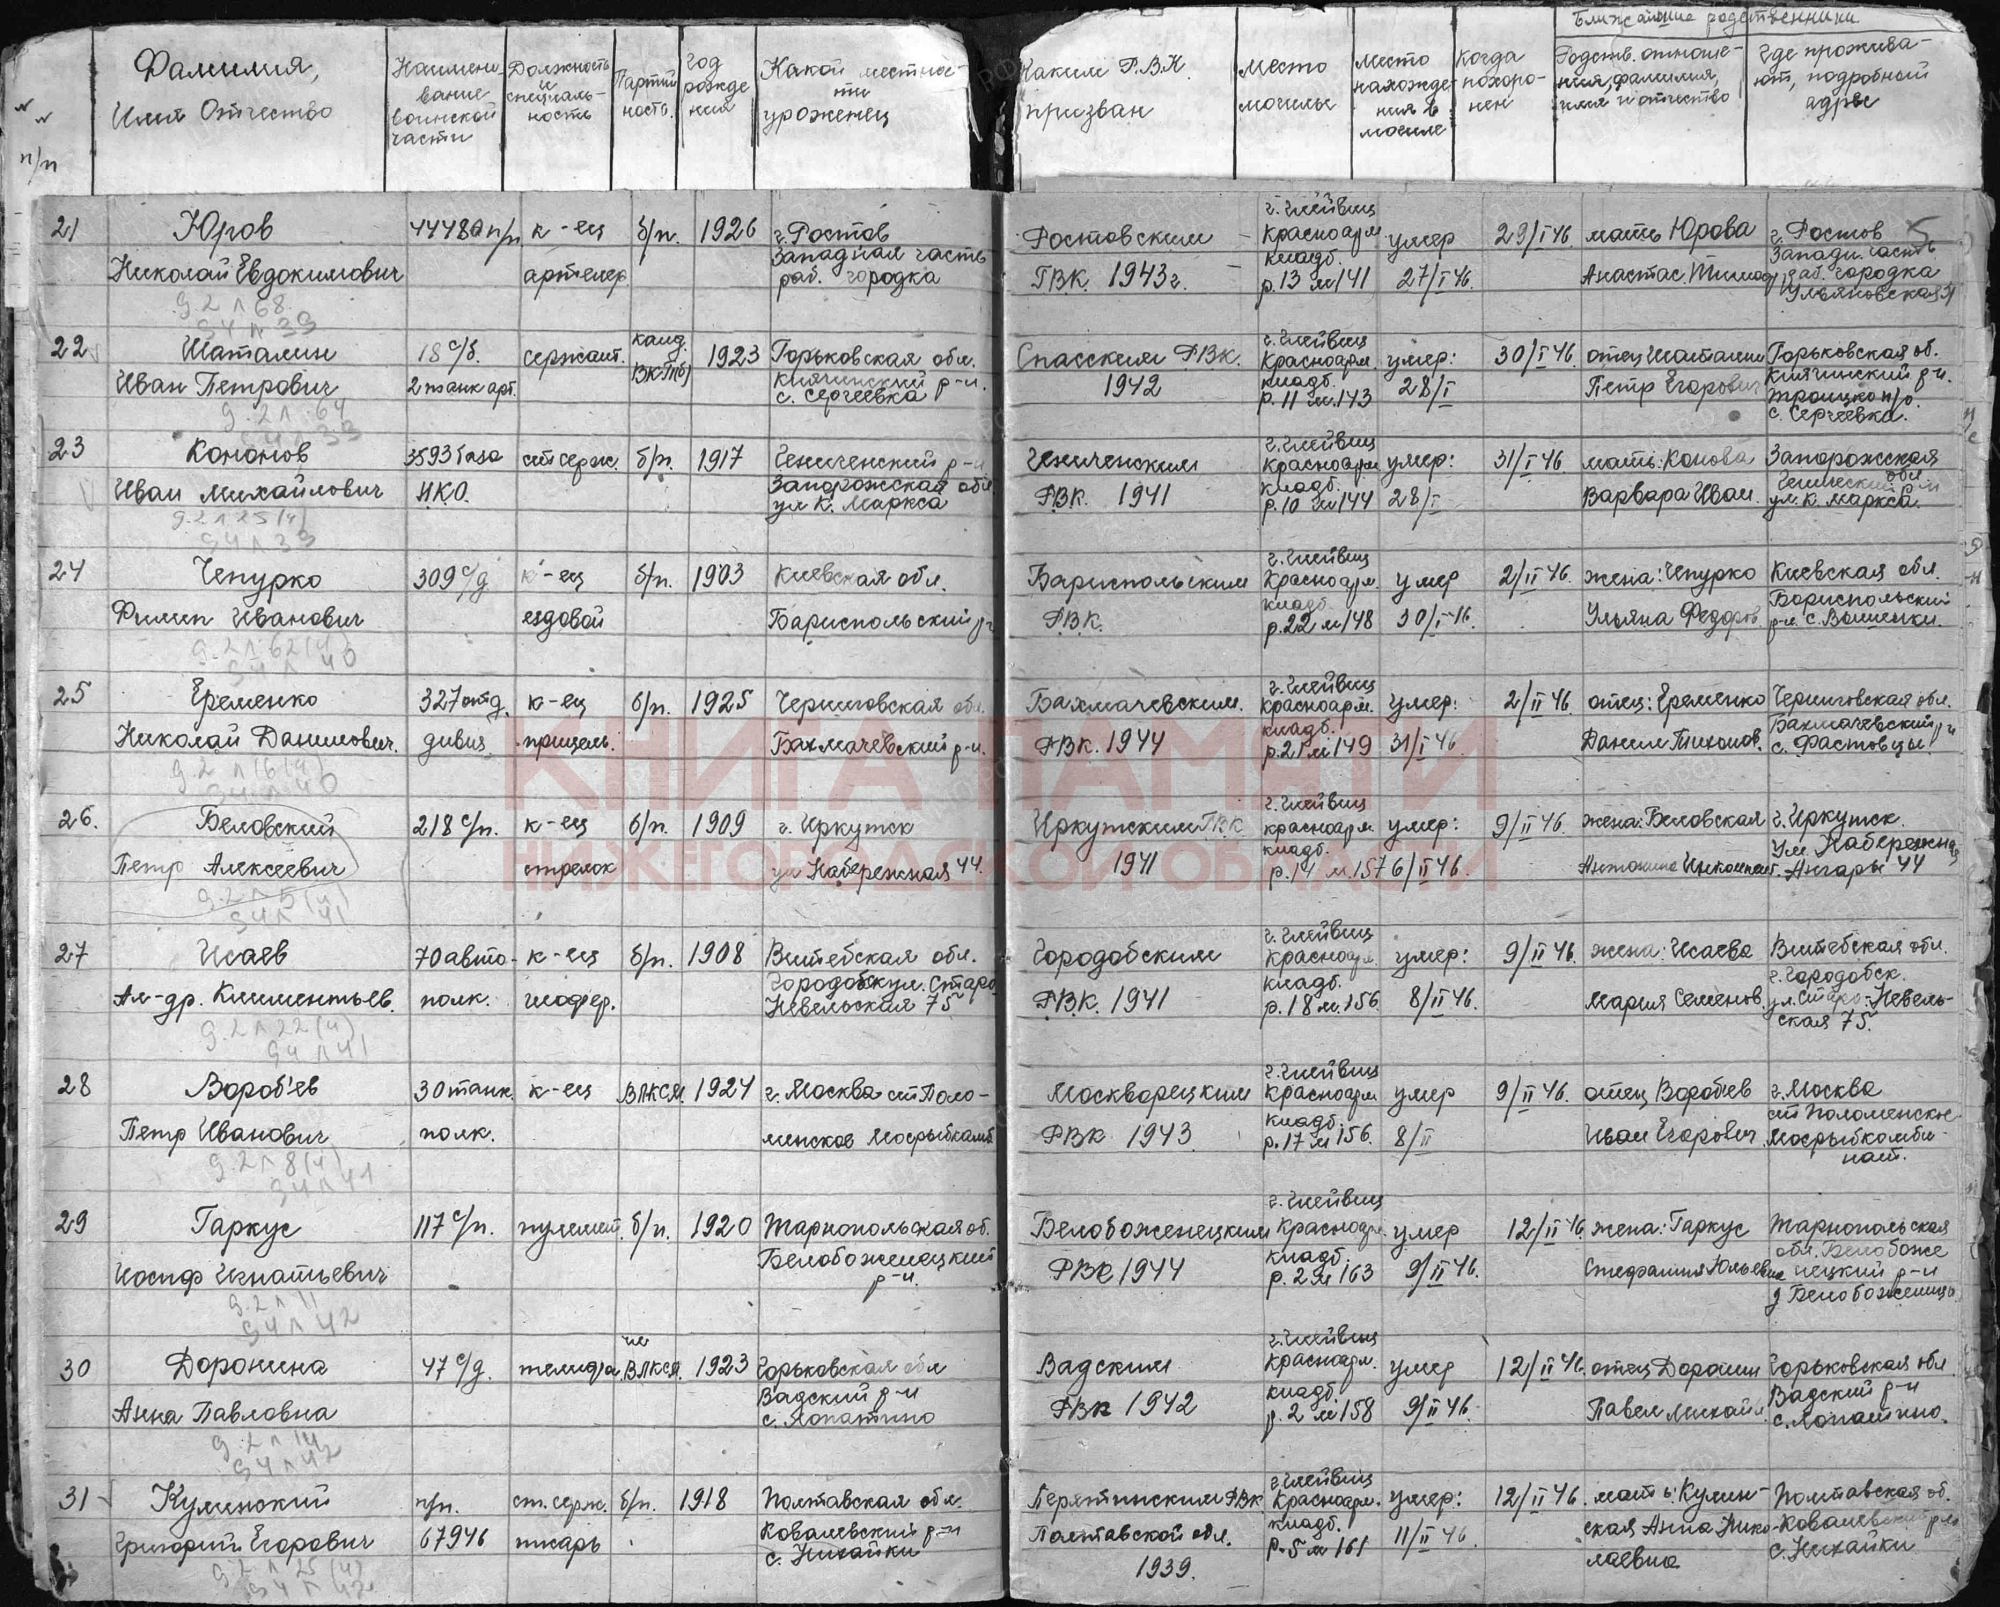 Ближайшие родственники
№№ п/п
Фамилия, Имя Отчество
Наименование воинской части
Должность и специальность
Партийность
Год рождения
Какой местности уроженец
Каким Р.В.К. призван
Место могилы
Место нахождения в могиле
Когда похоронен
Родств. отношения, фамилия, имя и отчество
Где проживают, подробный адрес
5
21 Юров 44480 п/п к-ец б/п. 1926 г. Ростов
Николай Евдокимович артелер Западная часть раб. городка
Ростовским ГВК 1943 г.
г. Глейвиц Красноарм кладб. р. 13 м 141
умер 27/I 46. 29/I 46.
мать Юрова Анастас.
г. Ростов Западн. часть раб. городка Ульяновская
д. 2 л 68
22 Шаталин 18 с/б. сержант. канд. ВКП(б) 1923 Горьковская обл.
Иван Петрович 2 танк арт. р-н. с. Сергеевка
Спасским РВК. 1942
г. Глейвиц Красноарм. кладб. р. 11 м. 143
умер: 28/I 30/I 46
отец Шаталин Петр Егорович
Горьковская об. р-н. Троицко п/о. с. Сергеевка.
д. 2 л 64
23 Кононов ст серж. б/п. 1917 Гениченский р-н
Иван Михайлович НКО. Запорожская обл. ул К. Маркса
Гениченским РВК. 1941
г. Глейвиц Красноарм кладб. р. 10 м 144
умер: 28/I 31/I 46
мать: Конова Варвара Иван.
Запорожская обл. ул. К. Маркса.
д. 2 л 25 (ч)
94 л 39
24 Чепурко 309 с/д к-ец б/п. 1903 Киевская обл.
Филип Иванович ездовой Бариспольский р-н
Бариспольским РВК.
г. Глейвиц Красноарм. кладб. р. 22 м 148
умер 30/I 46. 2/II 46.
жена: Чепурко Ульяна Федоров.
Киевская обл. Бориспольский р-н с.
д. 2 л 62 (ч)
94 л 40
25 Еременко 327 отд. к-ец б/п. 1925 Черниговская обл.
Николай Данилович. дивиз. прицель. Бахмачевский р-н.
Бахмачевским. РВК. 1944
г. Глейвиц Красноарм. кладб. р. 21 м 149
умер: 31/I 46 2/II 46.
отец: Еременко Данил Тихонов.
Черниговская обл. Бахмачевский р-н с. Фастовцы.
д. 2 л 16 (ч)
94 л 40
26. Беловский 218 с/п. к-ец б/п. 1909 г. Иркутск
Петр Алексеевич стрелок ул Набережная 44.
Иркутским ГВК 1941
г. Глейвиц красноарм. кладб. р. 14 м 157
умер: 6/II 46. 9/II 46.
жена: Беловская Антонина
г. Иркутск. ул Набережная Ангары 44
д. 2 л 5 (ч)
94 л 41
27 Исаев 70 авто- к-ец б/п. 1908 Витебская обл.
Ал-др. Климентьев. полк. шофер. ул. Старо Невельская 75
Городобским РВК. 1941
г. Глейвиц Красноарм. кладб. р. 18 м. 156
умер: 8/II 46. 9/II 46.
жена: Исаева Мария Семенов.
Витебская обл. г. Городобск. ул. Старо-Невельская 75.
д. 2 л 22 (ч)
94 л 41
28 Вороб'ев 30 танк. к-ец ВЛКСМ. 1924 г. Москва ст Поло-
Петр Иванович полк. менское Мосрыбкомб
Москворецким РВК 1943
г. Глейвиц Красноарм кладб. р. 17 м 156.
умер 8/II 9/II 46.
отец Воробьев Иван Егорович.
г. Москва ст Поломенское Мосрыбкомбинат.
д. 2 л 8 (ч)
94 л 41
29 Гаркус 117 с/п. пулемет. б/п. 1920 Тарнопольская об.
Иосиф Игнатьевич Белобоженецкий р-н.
Белобоженецким РВК 1944
г. Глейвиц Красноар. кладб. р. 2 м 163
умер 9/II 46. 12/II 46
жена: Гаркус Стефания Юльевна
Тарнопольская обл. Белобоженецкий р-н д Белобоженицы
д. 2 л 11
94 л 42
30 Доронина 47 с/д. чл ВЛКСМ. 1923 Горьковская обл
Анна Павловна Вадский р-н с. Лопатино
Вадским РВК 1942
г. Глейвиц Красноарм. кладб р. 2 м 158
умер 9/II 46. 12/II 46.
отец Доронин Павел Михайл.
Горьковская обл Вадский р-н с. Лопатино.
д. 2 л 14
94 л 42
31 Кулинский п/п. ст. серж. б/п. 1918 Полтавская обл.
Григорий Егорович 67946 писарь Ковалевский р-н с. Нихайки
Перятинским РВК Полтавской обл. 1939.
г. Глейвиц Красноарм. кладб. р. 5 м 161
умер: 11/II 46 12/II 46.
мать: Кулинская Анна Николаевна
Полтавская об. Ковалевский р-н с. Нихайки
д. 2 л 25 (ч)
94 л 42
КНИГА ПАМЯТИ
НИЖЕГОРОДСКОЙ ОБЛАСТИ